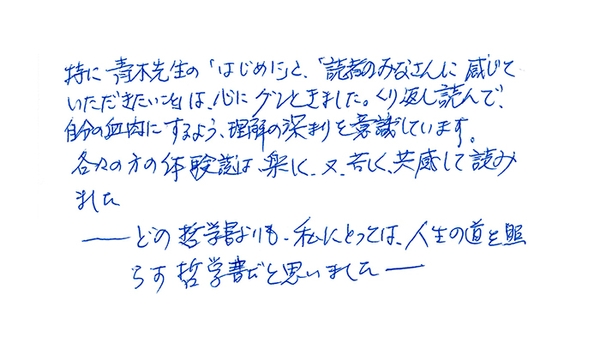 特に青木先生の「はじめに」と、「読者のみなさんに感じて
いただきたいこと」は、心にグンときました。くり返し読んで、
自分の血肉にするよう、理解の深まりを意識しています。
各々の方の体験談は、楽しく、又、苦しく、共感して読み
ました
――どの哲学書よりも、私にとっては、人生の道を照
らす哲学書だと思いました――